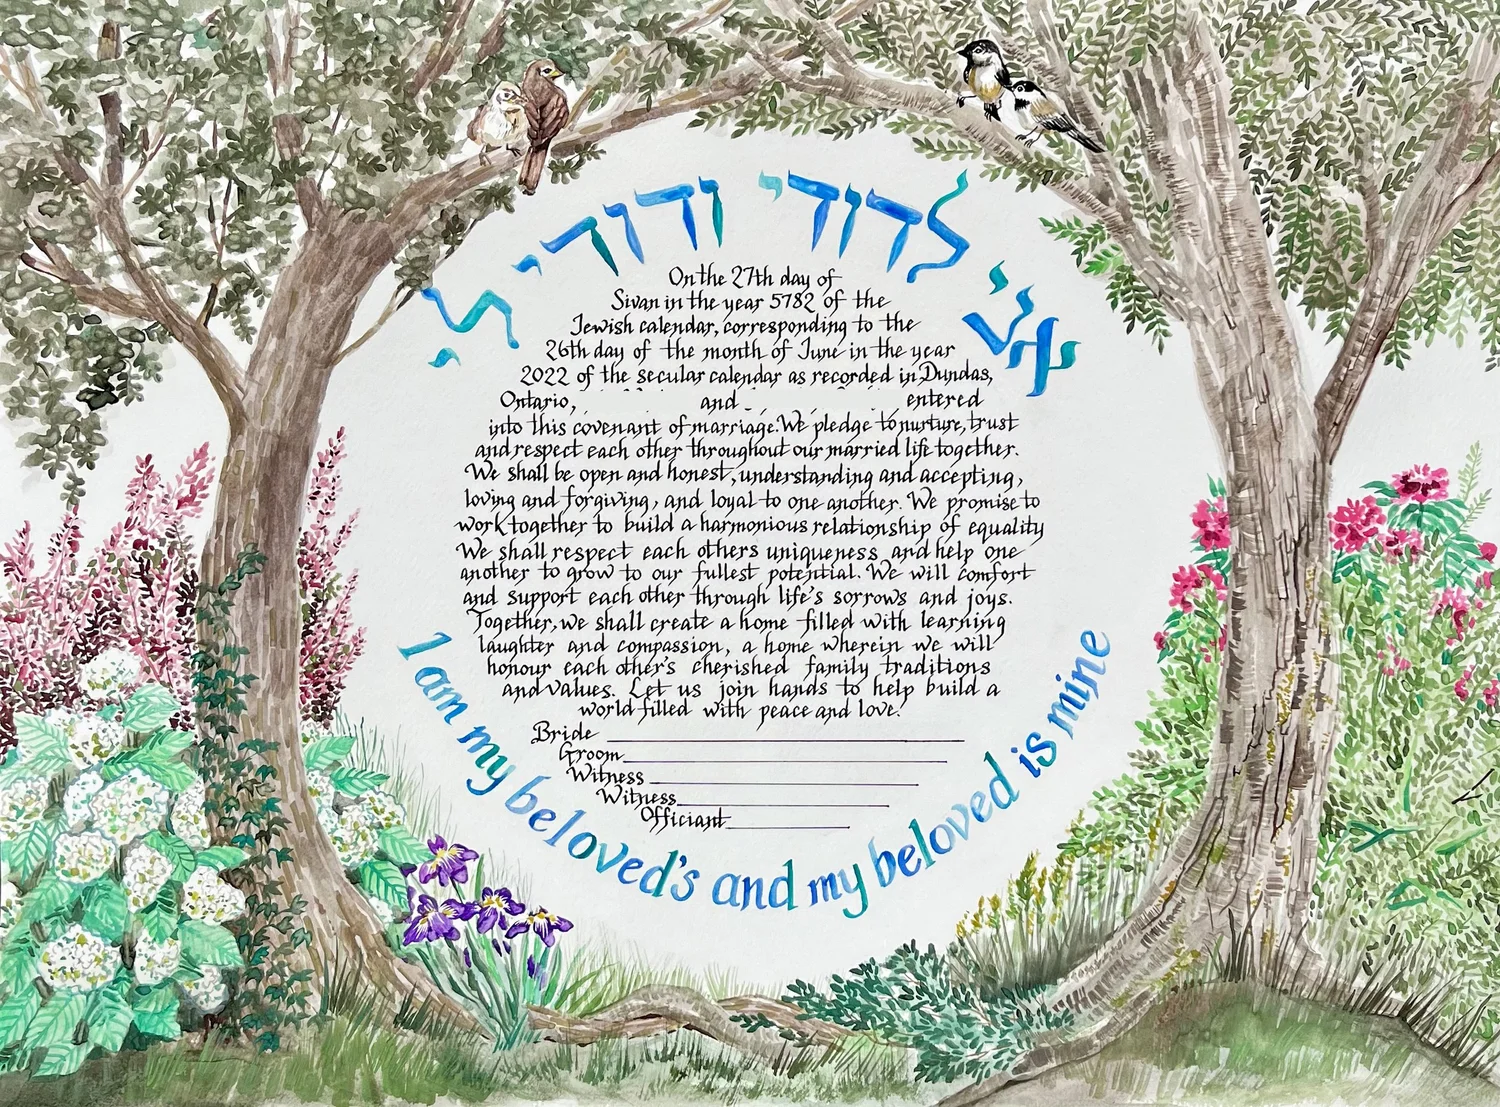 אני לדודי ודודי לי
On the 27th day of
Sivan in the year 5782 of the
Jewish calendar, corresponding to the
26th day of the month of June in the year
2022 of the secular calendar as recorded in Dundas,
Ontario, and entered
into this covenant of marriage. We pledge to nurture, trust
and respect each other throughout our married life together.
We shall be open and honest, understanding and accepting,
loving and forgiving, and loyal to one another. We promise to
work together to build a harmonious relationship of equality
We shall respect each others uniqueness and help one
another to grow to our fullest potential. We will comfort
and support each other through life's sorrows and joys.
Together, we shall create a home filled with learning
laughter and compassion, a home wherein we will
honour each other's cherished family traditions
and values. Let us join hands to help build a
world filled with peace and love.
Bride
Groom
Witness
Witness
Officiant
I am my beloved's and my beloved is mine